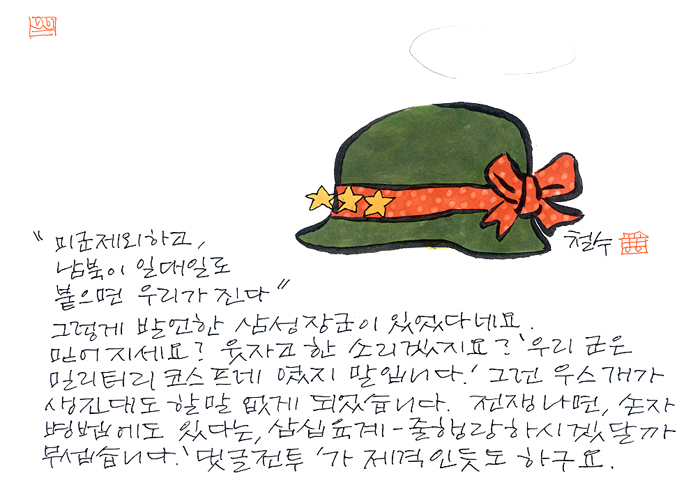 철수
"미군제외하고,
남북이 일대일로
붙으면 우리가 진다"
그렇게 발언한 삼성장군이 있었다네요.
믿어지세요? 웃자고 한 소리겠지요? '우리 군은
밀리터리 코스프레 였지 말입니다.' 그런 우스개가
생긴대도 할말 없게 되었습니다. 전쟁나면, 손자
병법에도 있다는, 삼십육계-줄행랑하시겠달까
무섭습니다. '댓글전투'가 제격인듯도 하구요.